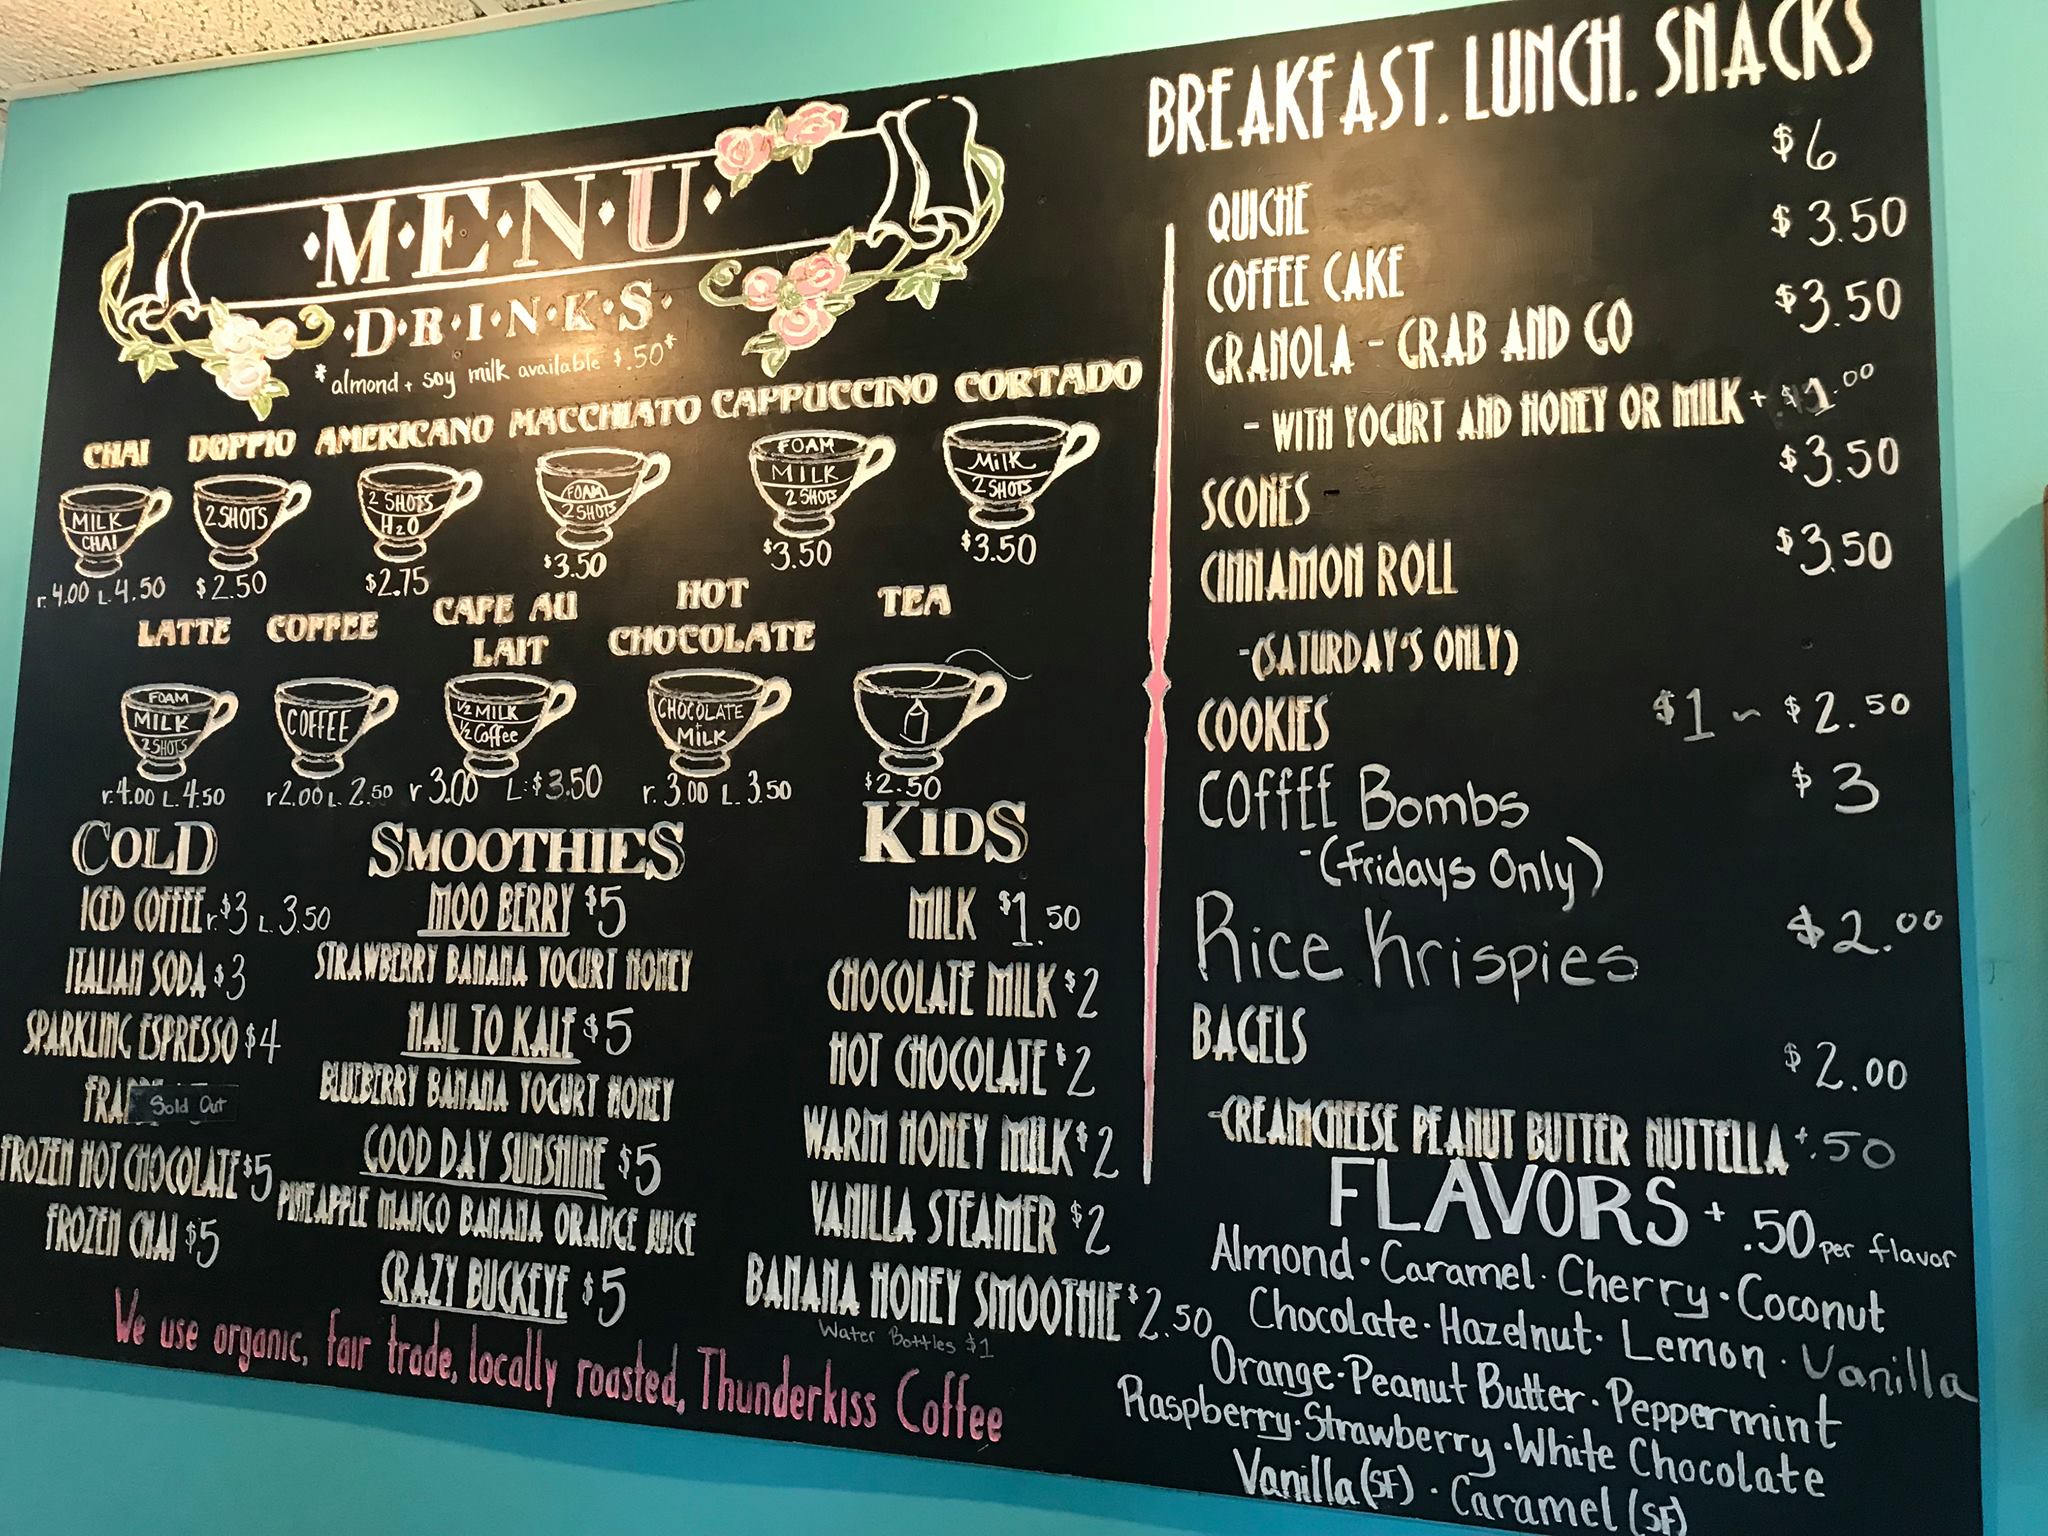 ·M·E·N·U·
·D·R·I·N·K·S·
*almond + soy milk available $.50*
CHAI DOPPIO AMERICANO MACCHIATO CAPPUCCINO CORTADO
MILK CHAI
2 SHOTS
2 SHOTS H2O
FOAM 2 SHOTS
FOAM MILK 2 SHOTS
MILK 2 SHOTS
r. 4.00 L. 4.50 $2.50 $2.75 $3.50 $3.50 $3.50
LATTE COFFEE CAFE AU LAIT HOT CHOCOLATE TEA
FOAM MILK 2 SHOTS
COFFEE
1/2 MILK 1/2 Coffee
CHOCOLATE + MILK
r. 4.00 L. 4.50 r 2.00 L. 2.50 r 3.00 L: $3.50 r. 3.00 L. 3.50 $2.50
COLD
ICED COFFEE r. $3 L 3.50
ITALIAN SODA $3
SPARKLING ESPRESSO $4
Sold Out
FROZEN HOT CHOCOLATE $5
FROZEN CHAI $5
SMOOTHIES
MOO BERRY $5
STRAWBERRY BANANA YOGURT HONEY
HAIL TO KALE $5
BLUEBERRY BANANA YOGURT HONEY
GOOD DAY SUNSHINE $5
PINEAPPLE MANGO BANANA ORANGE JUICE
CRAZY BUCKEYE $5
KIDS
MILK $1.50
CHOCOLATE MILK $2
HOT CHOCOLATE $2
WARM HONEY MILK $2
VANILLA STEAMER $2
BANANA HONEY SMOOTHIE $2.50
Water Bottles $1
We use organic, fair trade, locally roasted, Thunderkiss Coffee
BREAKFAST. LUNCH. SNACKS
QUICHE $6
COFFEE CAKE $3.50
GRANOLA - GRAB AND GO $3.50
- WITH YOGURT AND HONEY OR MILK + $1.00
SCONES $3.50
CINNAMON ROLL $3.50
-(SATURDAY'S ONLY)
COOKIES $1 ~ $2.50
COFFEE Bombs $3
-(Fridays Only)
Rice Krispies $2.00
BAGELS $2.00
-CREAMCHEESE PEANUT BUTTER NUTTELLA +.50
FLAVORS + .50 per flavor
Almond · Caramel · Cherry · Coconut
Chocolate · Hazelnut · Lemon · Vanilla
Orange · Peanut Butter · Peppermint
Raspberry · Strawberry · White Chocolate
Vanilla (SF) · Caramel (SF)